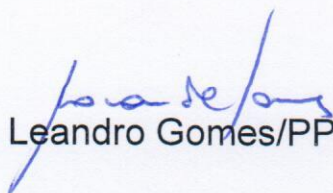 Leandro Gomes/PP